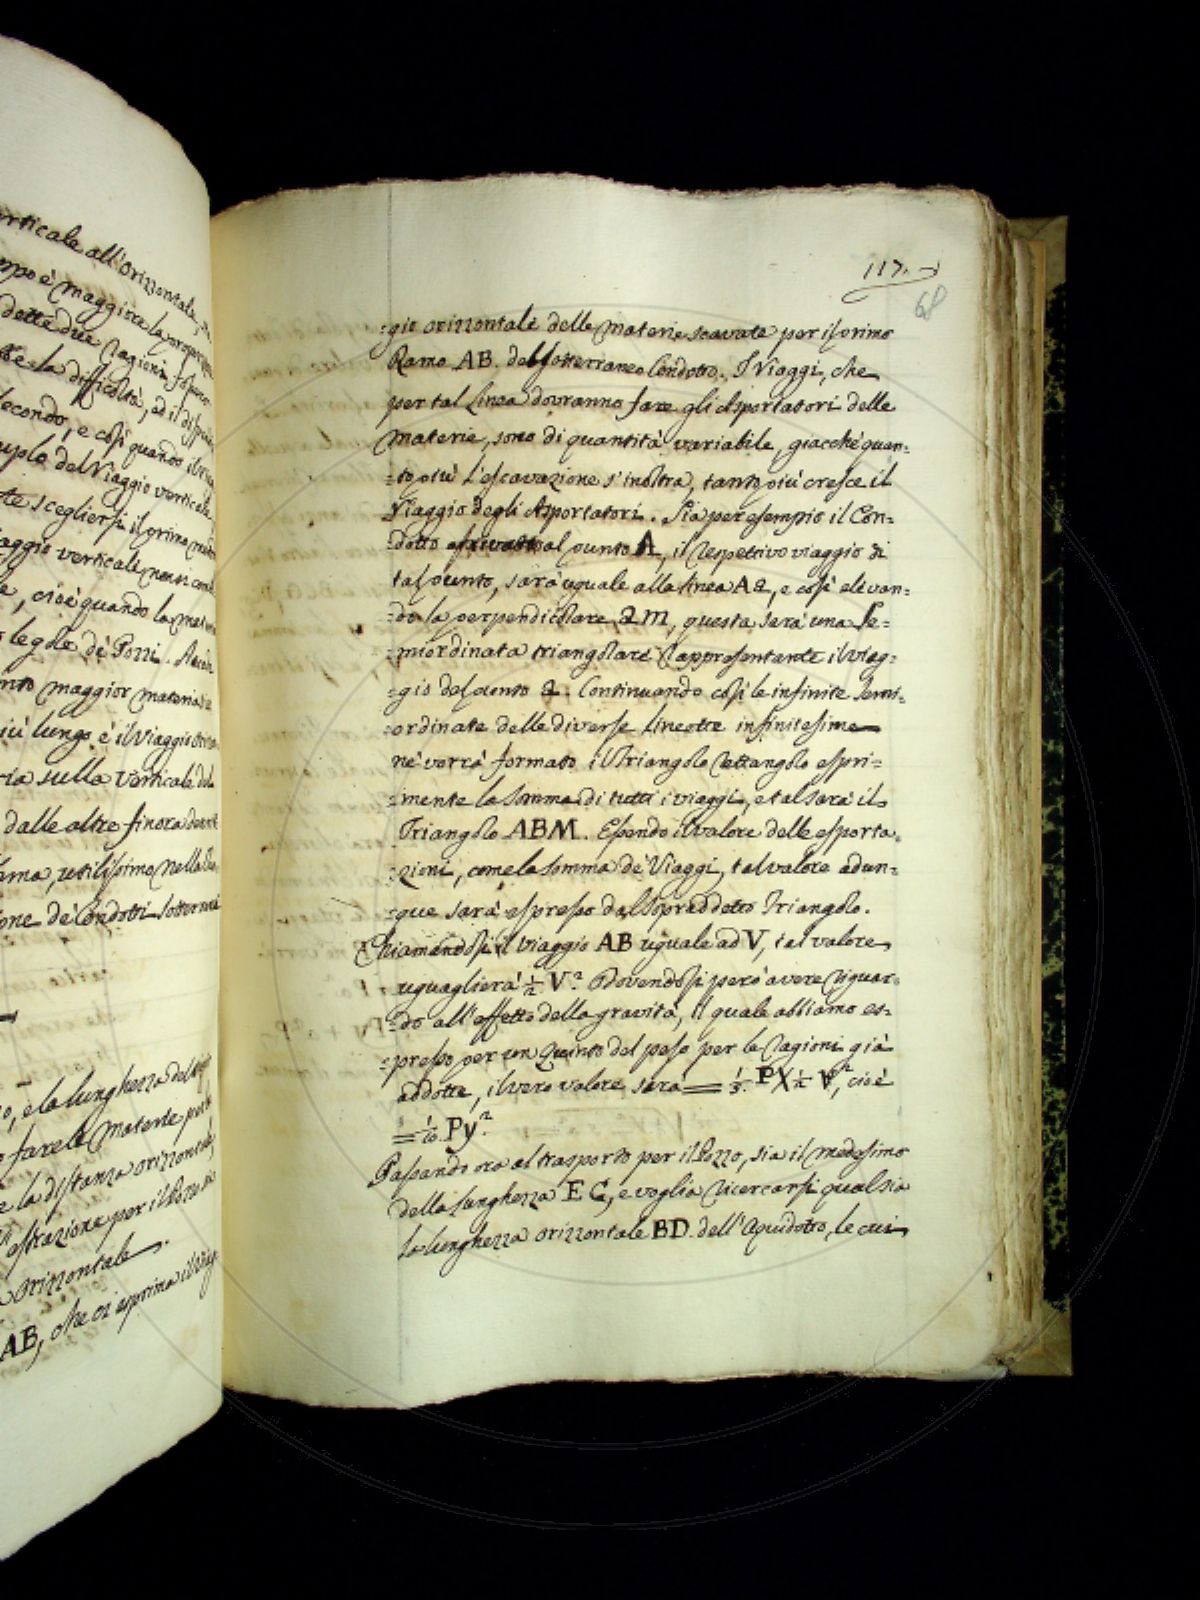 verticale all'orizzontale,
è maggiore la
dette due ragioni
la difficoltà, ed il
secondo, e così quando il
del Viaggio verticale
scegliersi il primo
verticale non
, cioè quando la
regole dè Pozzi.
maggior materia
lungo è il Viaggio
sulla verticale
dalle altre finora
utilissimo nella
dè Condotti
, e la lunghezza del
fare le Materie per
la distanza orizontale,
estrazione per il Pozzo
orizzontale.
AB, che ci esprima il Viag
117.
68
=gio orizzontale delle Materie scavate per il primo
Ramo AB. del sotterraneo Condotto. I Viaggi, che
per tal Linea dovranno fare gli Asportatori delle
Materie, sono di quantità variabile, giacchè quan-
=to più l'escavazione s'inoltra, tanto più cresce il
Viaggio degli Asportatori. Sia per esempio il Con-
=dotto arrivato al punto A, il respettivo viaggio di
tal punto, sarà uguale alla linea A2, e così elevan-
=do la perpendicolare 2m, questa sarà una Se=
=miordinata triangolare rappresentante il viag=
=gio del punto 2. Continuando così le infinite Semi-
=ordinate delle diverse lineette infinitesime
nè verrà formato il Triangolo rettangolo espri=
=mente la Somma di tutti i viaggi, e tal sarà il
Triangolo ABM. Essendo il valore delle esporta-
=zioni, come la somma dè Viaggi, tal valore adun-
=que sarà espresso dal sopraddetto Triangolo.
Chiamandosi il viaggio AB uguale ad V, tal valore
uguaglierà ½ V². Dovendosi però avere riguar-
=do all'effetto della gravità, il quale abbiamo es-
=presso per un Quinto del peso per le ragioni già
addotte, il vero valore sarà = ⅕ P X ½ V², cioè
= 1/10 Py².
Passando ora al trasporto per il Pozzo, sia il medesimo
della lunghezza EC, e voglia ricercarsi qual sia
la lunghezza orizzontale BD. dell'Aquidotto, le cui